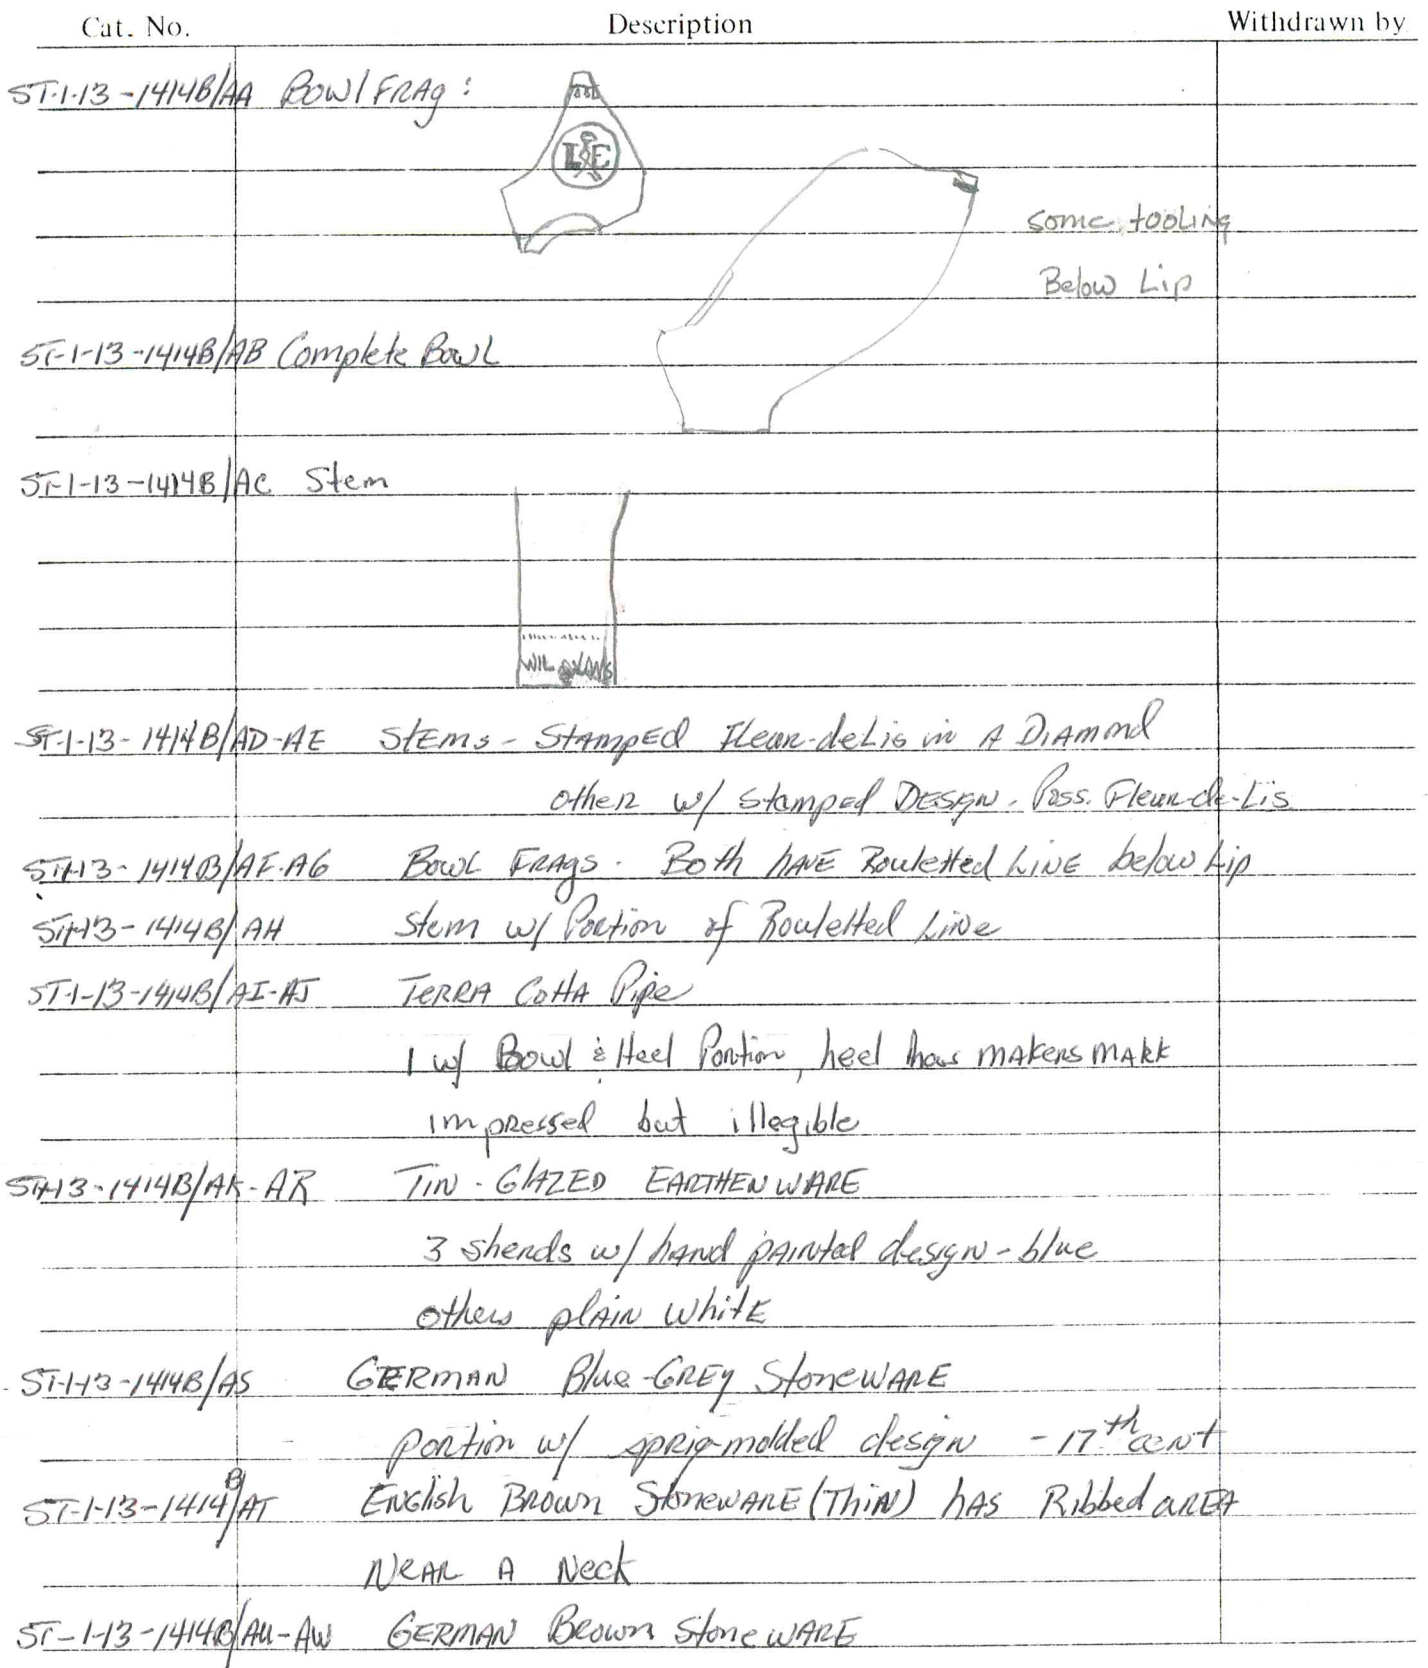 Cat. No. Description Withdrawn by
ST-1-13-1414B/AA Bowl Frag:
L E
some tooling
Below Lip
ST-1-13-1414B/AB Complete Bowl
ST-1-13-1414B/AC Stem
WIL EVANS
ST-1-13-1414B/AD-AE Stems - Stamped Fleur-deLis in A Diamond
other w/ stamped DESIGN - Poss. Fleur-de-Lis
ST-1-13-1414B/AF-AG Bowl FRAgs. Both hAVE Rouletted LiNE below Lip
ST-1-13-1414B/AH Stem w/ Portion of Rouletted LiNe
ST-1-13-1414B/AI-AJ TERRA CottA Pipe
1 w/ Bowl & Heel Portion, heel has makers mark
impressed but illegible
ST-1-13-1414B/AK-AR TIN-GLAZED EARTHENWARE
3 sherds w/ hand painted design - blue
others plAIN whitE
ST-1-13-1414B/AS GERMAN Blue-GREY StoneWARE
portion w/ sprig-molded design - 17th cent
ST-1-13-1414B/AT ENGlish BROWN StoneWARE (THiN) hAS Ribbed AREA
NEAR A Neck
ST-1-13-1414B/AU-AW GERMAN BROWN StoneWARE